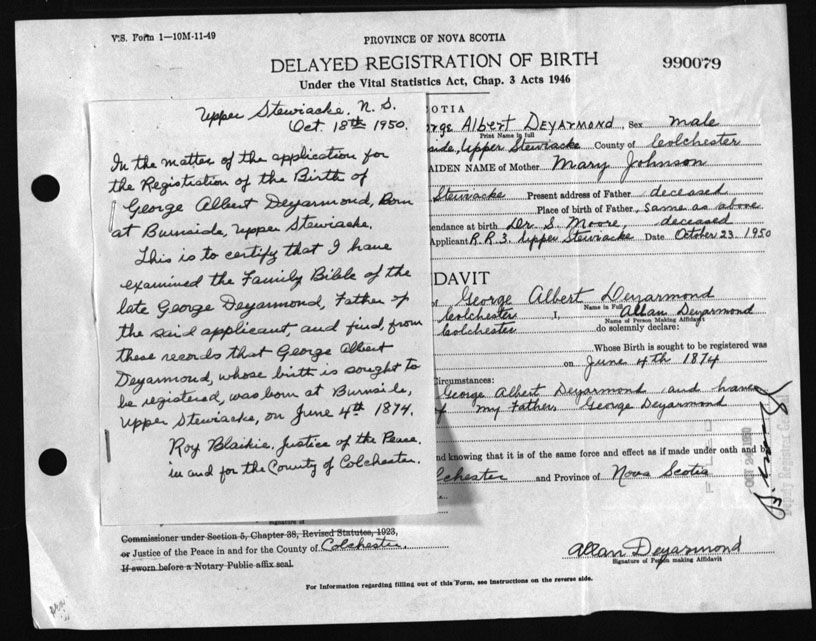 V.S. Form 1—10M-11-49
PROVINCE OF NOVA SCOTIA
DELAYED REGISTRATION OF BIRTH
990079
Under the Vital Statistics Act, Chap. 3 Acts 1946
Upper Stewiacke, N. S.
Oct. 18th 1950.
In the matter of the application for
the Registration of the Birth of
George Albert Deyarmond, Born
at Burnside, Upper Stewiacke.
This is to certify that I have
examined the Family Bible of the
late George Deyarmond, Father of
the said applicant, and find, from
these records that George Albert
Deyarmond, whose birth is sought to
be registered, was born at Burnside,
Upper Stewiacke, on June 4th 1874.
Roy Blaikie, Justice of the Peace,
in and for the County of Colchester.
OTIA
rge Albert DEYARMOND, Sex male
Print Name in full
side, Upper Stewiacke County of Colchester
AIDEN NAME of Mother Mary Johnson
Stewiacke Present address of Father deceased
Place of birth of Father, same as above
endance at birth Dr. S. Moore, deceased
Applicant R.R.3. Upper Stewiacke Date October 23. 1950
DAVIT
of George Albert Deyarmond
Name in Full
Colchester I, Allan Deyarmond
Name of Person Making Affidavit
Colchester do solemnly declare:
Whose Birth is sought to be registered was
on June 4th 1874
Circumstances:
George Albert Deyarmond and have
my Father, George Deyarmond
nd knowing that it is of the same force and effect as if made under oath and
lchester and Province of Nova Scotia
FILED
OCT 24 1950
Deputy Registrar General
Signature of
Commissioner under Section 5, Chapter 38, Revised Statutes, 1923,
or Justice of the Peace in and for the County of Colchester.
If sworn before a Notary Public affix seal.
Allan Deyarmond
Signature of Person making Affidavit
For Information regarding filling out of this Form, see Instructions on the reverse side.